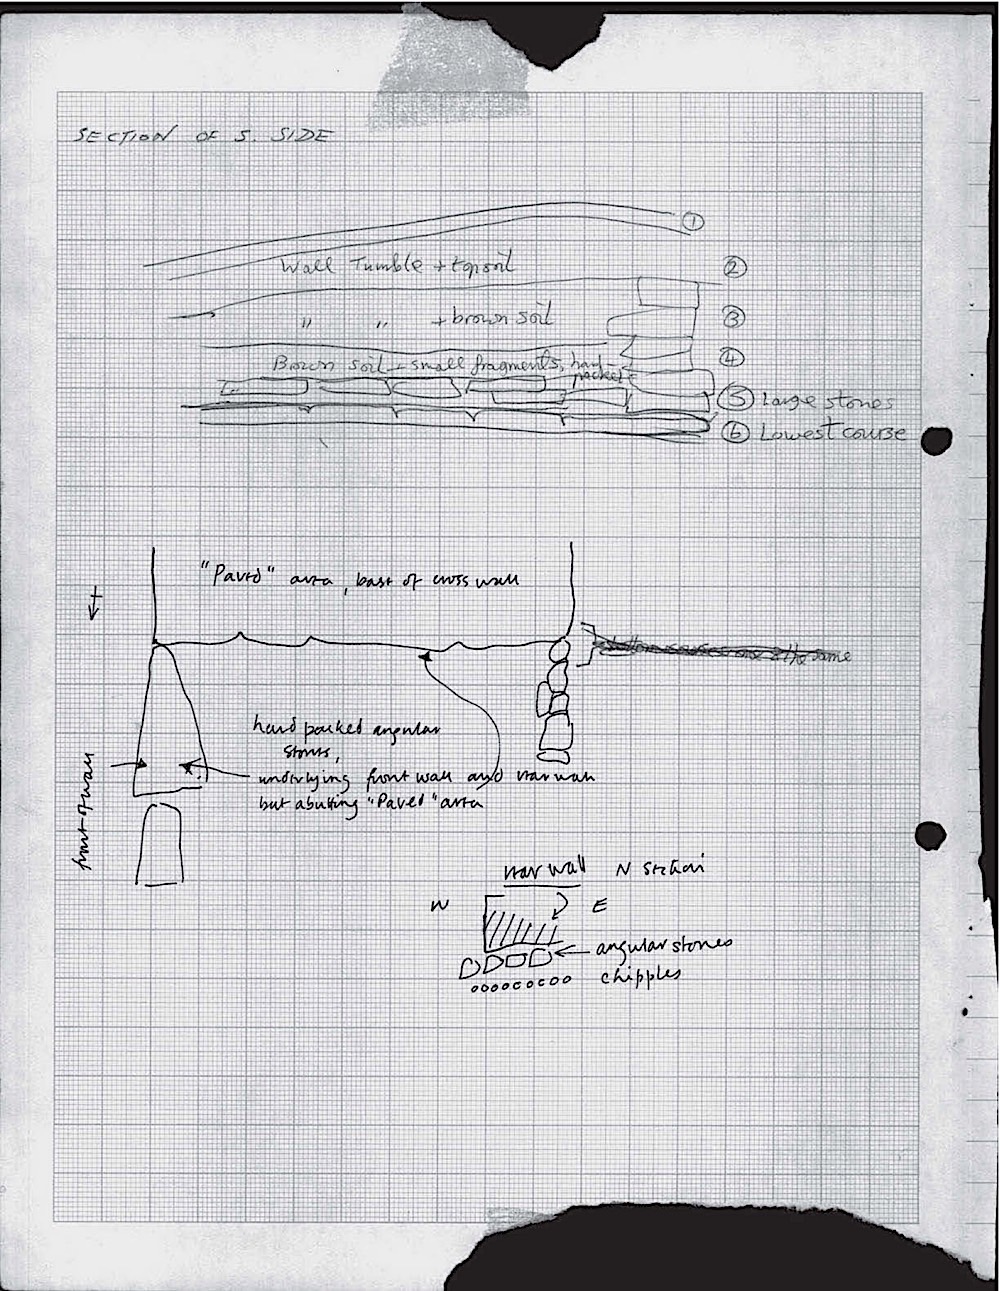 SECTION OF S. SIDE
①
Wall Tumble + topsoil ②
" " + brown soil ③
Brown soil + small fragments, hard packed ④
⑤ Large stones
⑥ Lowest course
"Paved" area, east of cross wall
bottom courses are the same
hard packed angular
stones,
underlying front wall and rear wall
but abutting "Paved" area
front of wall
rear wall N section
W E
angular stones
chipples